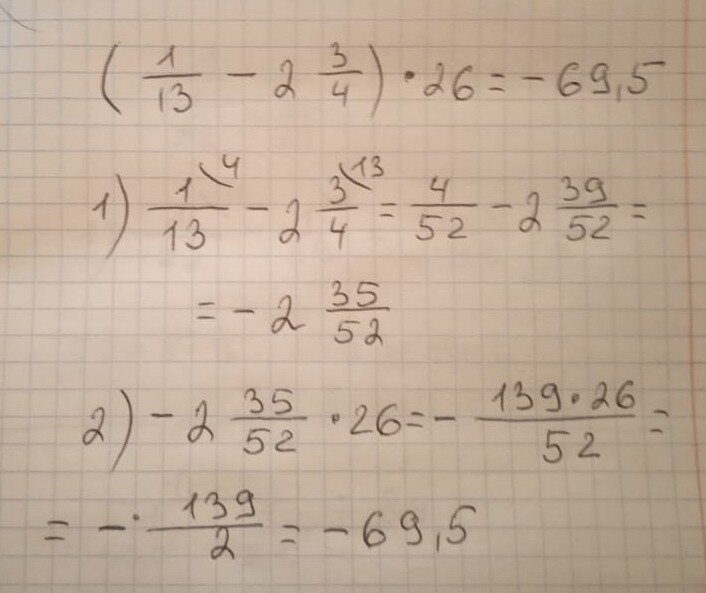 (1/13 - 2 3/4) · 26 = - 69,5
1) 1\4/13 - 2 3\13/4 = 4/52 - 2 39/52 =
= - 2 35/52
2) - 2 35/52 · 26 = - 139 · 26/52 =
= - 139/2 = - 69,5